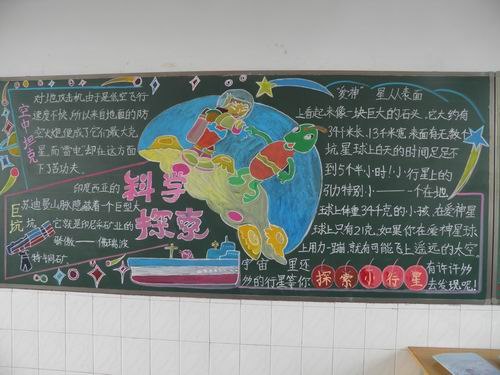 空中坦克
对地攻击机由于是低空飞行
速度不快,所以来自地面的防
空火炮,便成了它们最大克
星,而"雷电"却在这方面
下了活功夫
巨坑
印度西亚的
苏迪曼山脉隐藏着一个巨型大
坑,它就是印尼矿业的
骄傲——
特号铜矿
科学
探索
"爱神"星从表面
上看起来像一块巨大的石头,它大约有
34千米长、13千米宽,表面有无数个
坑,星球上白天的时间足足不
到5个半小时!小行星上的
引力特别小——一个在地
球上体重34千克的小孩,在爱神星
球上只有21克,如果你在爱神星球
上用力一蹦,就有可能飞上遥远的太空
宇宙里还有许许多
多的行星等你去发现呢!
探索小行星